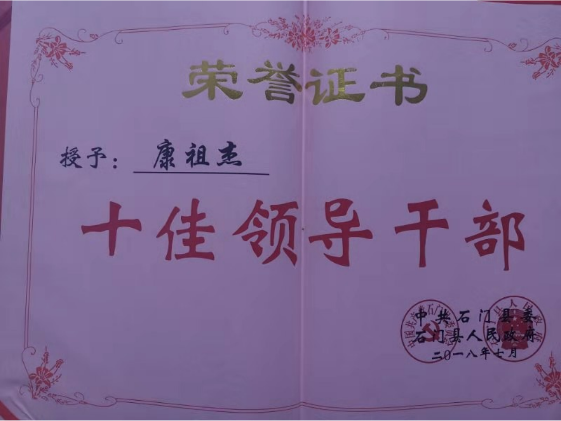 荣誉证书
授予：康祖杰
十佳领导干部
中共石门县委
石门县人民政府
二〇一八年七月